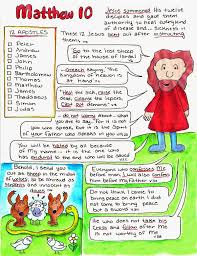 Matthew 10
Jesus summoned His twelve
disciples and gave them
authority to heal every kind
of disease and sickness
12 APOSTLES
Peter
Andrew
James
John
Philip
Bartholomew
Thomas
Matthew
James
Thaddaeus
Simon
Judas
These 12 Jesus sent out after
instructing
them
Go to the lost sheep of
the house of Israel
preach saying "The
kingdom of heaven is
at hand"
Heal the sick, raise the
dead, cleanse the lepers,
cast out demons
do not worry about what
you are to say. For it is not
you who speak, but it is the Spirit
of your Father who speaks in you
You will be hated by all because
of My name, it is the one who
has endured to the end who will be saved
Behold, I send you
out as sheep in the midst
of wolves, so be shrewd as
serpents and innocent as
doves
Everyone who confesses Me before
men, I will also confess
him before My Father
Do not think I came to
bring peace on earth. I did
not come to bring peace
but a sword
He who does not take his
cross and follow after Me
is not worthy of Me